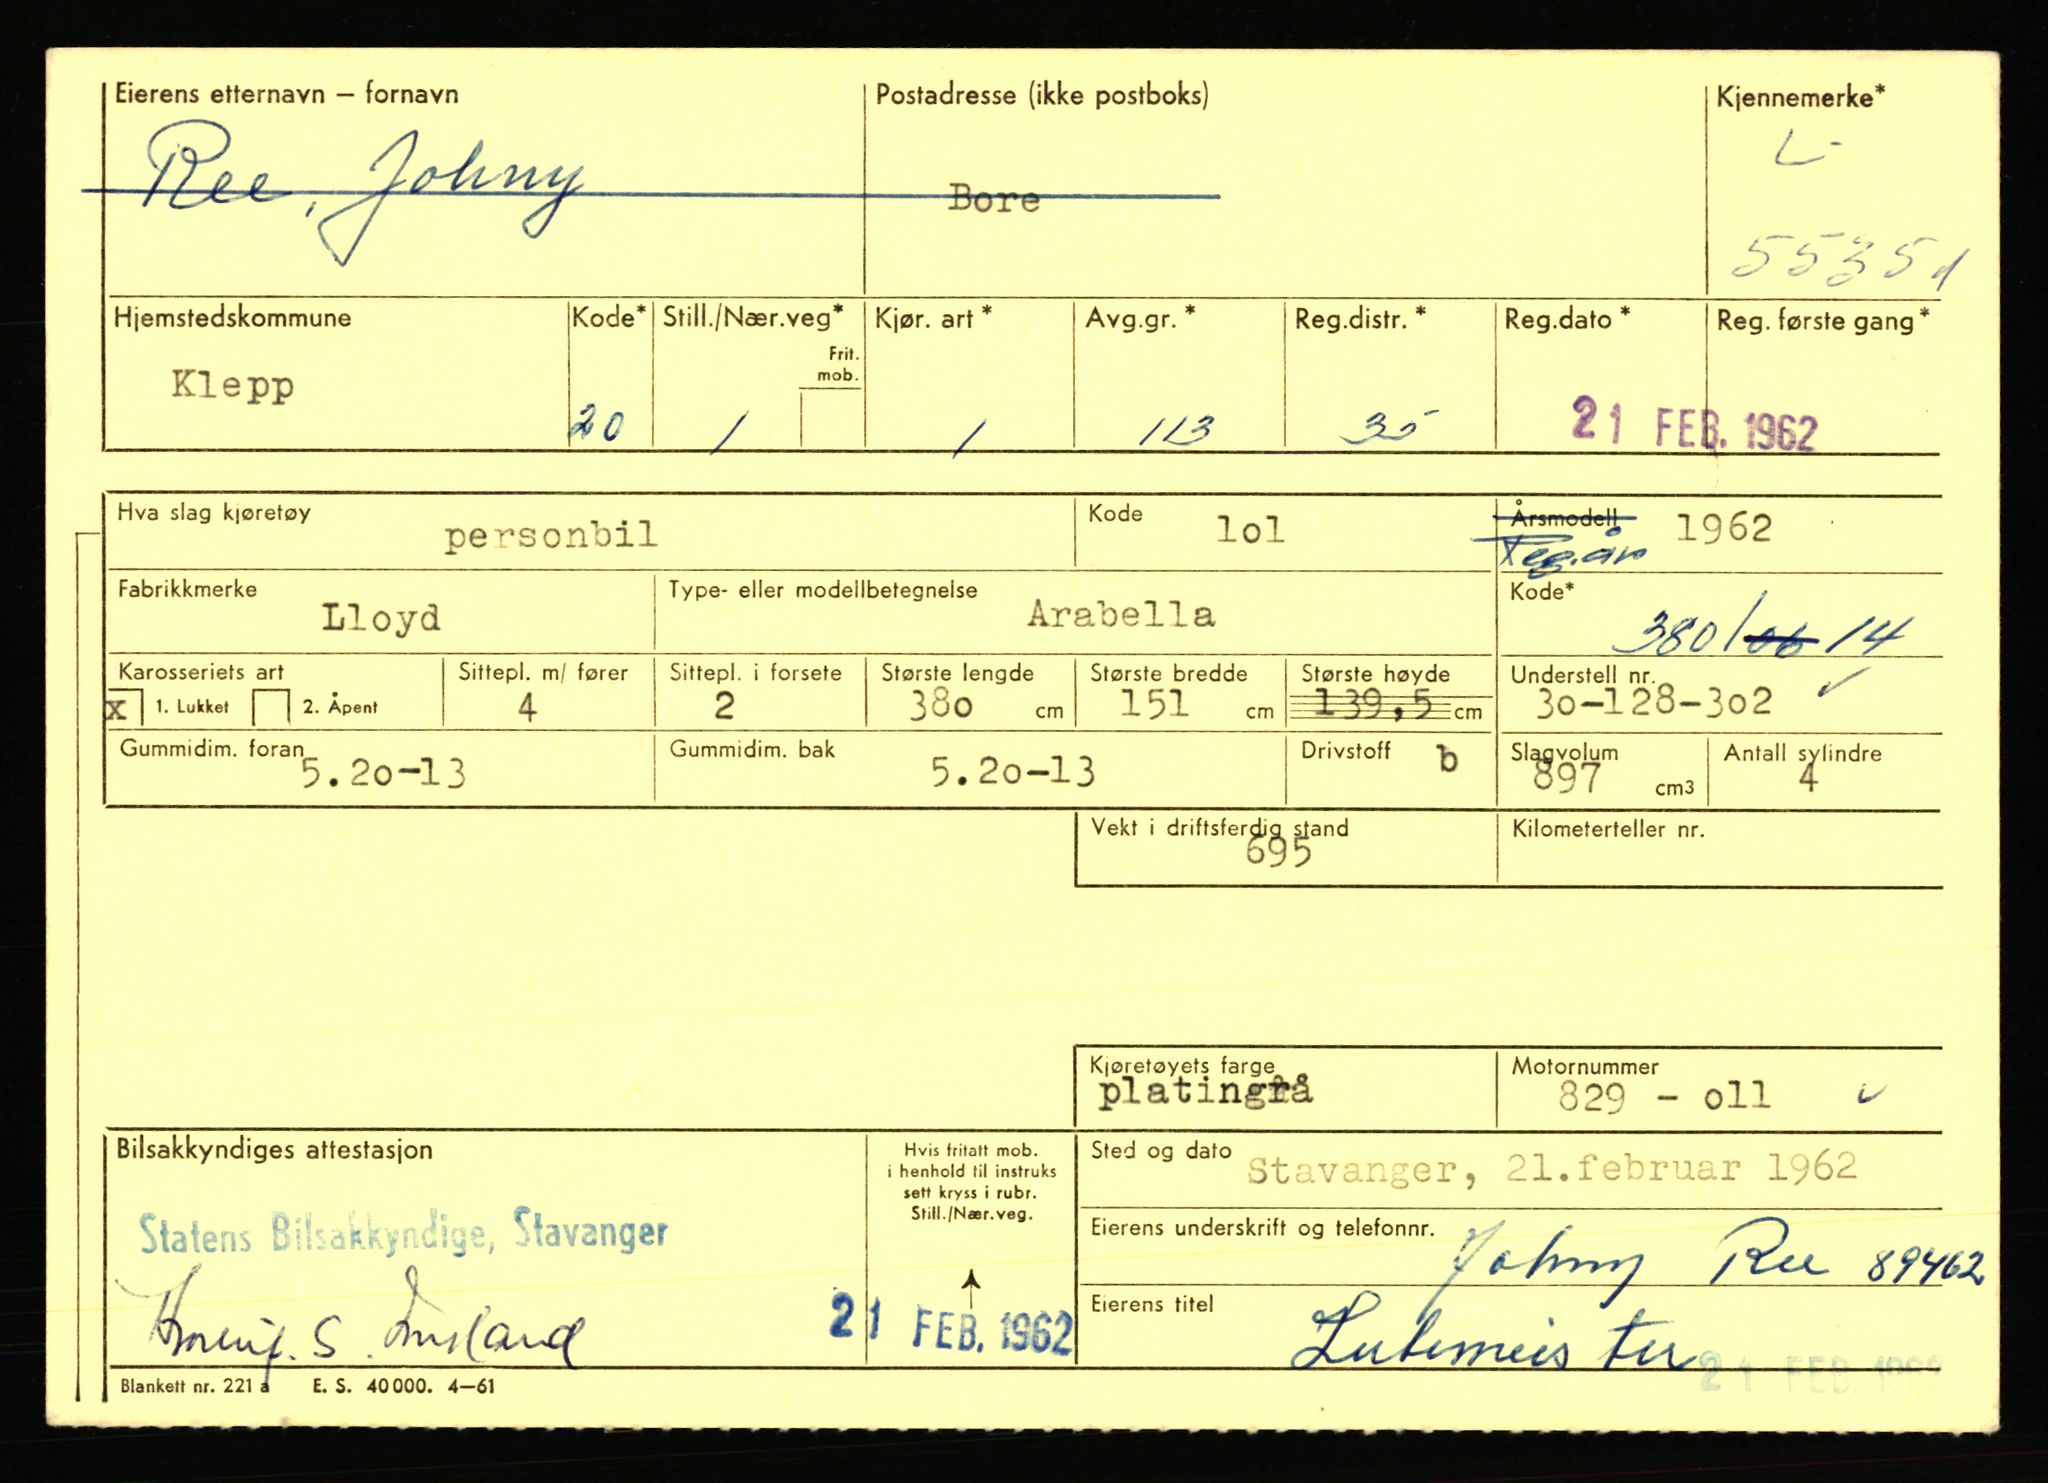 Eierens etternavn – fornavn Postadresse (ikke postboks) Kjennemerke*
Ree, Johny Bore L-
55351
Hjemstedskommune Kode* Still./Nær.veg* Kjør. art* Avg.gr.* Reg.distr.* Reg.dato* Reg. første gang*
Frit.
mob.
Klepp 20 1 1 113 35 21 FEB. 1962
Hva slag kjøretøy personbil Kode lol Årsmodell 1962
Reg.år
Fabrikkmerke Lloyd Type- eller modellbetegnelse Arabella Kode*
380/06 14
Karosseriets art Sittepl. m/ fører Sittepl. i forsete Største lengde Største bredde Største høyde Understell nr.
x 1. Lukket 2. Åpent 4 2 380 cm 151 cm 139,5 cm 3o-128-3o2
Gummidim. foran Gummidim. bak Drivstoff b Slagvolum Antall sylindre
5.2o-13 5.2o-13 897 cm3 4
Vekt i driftsferdig stand Kilometerteller nr.
695
Kjøretøyets farge Motornummer
platingrå 829 - oll
Bilsakkyndiges attestasjon Hvis fritatt mob.
i henhold til instruks
sett kryss i rubr.
Still./Nær.veg.
Sted og dato Stavanger, 21.februar 1962
Statens Bilsakkyndige, Stavanger
Eierens underskrift og telefonnr. Johny Ree 89462
21 FEB. 1962
Eierens titel
21 FEB. 1962
Blankett nr. 221 a E. S. 40 000. 4–61